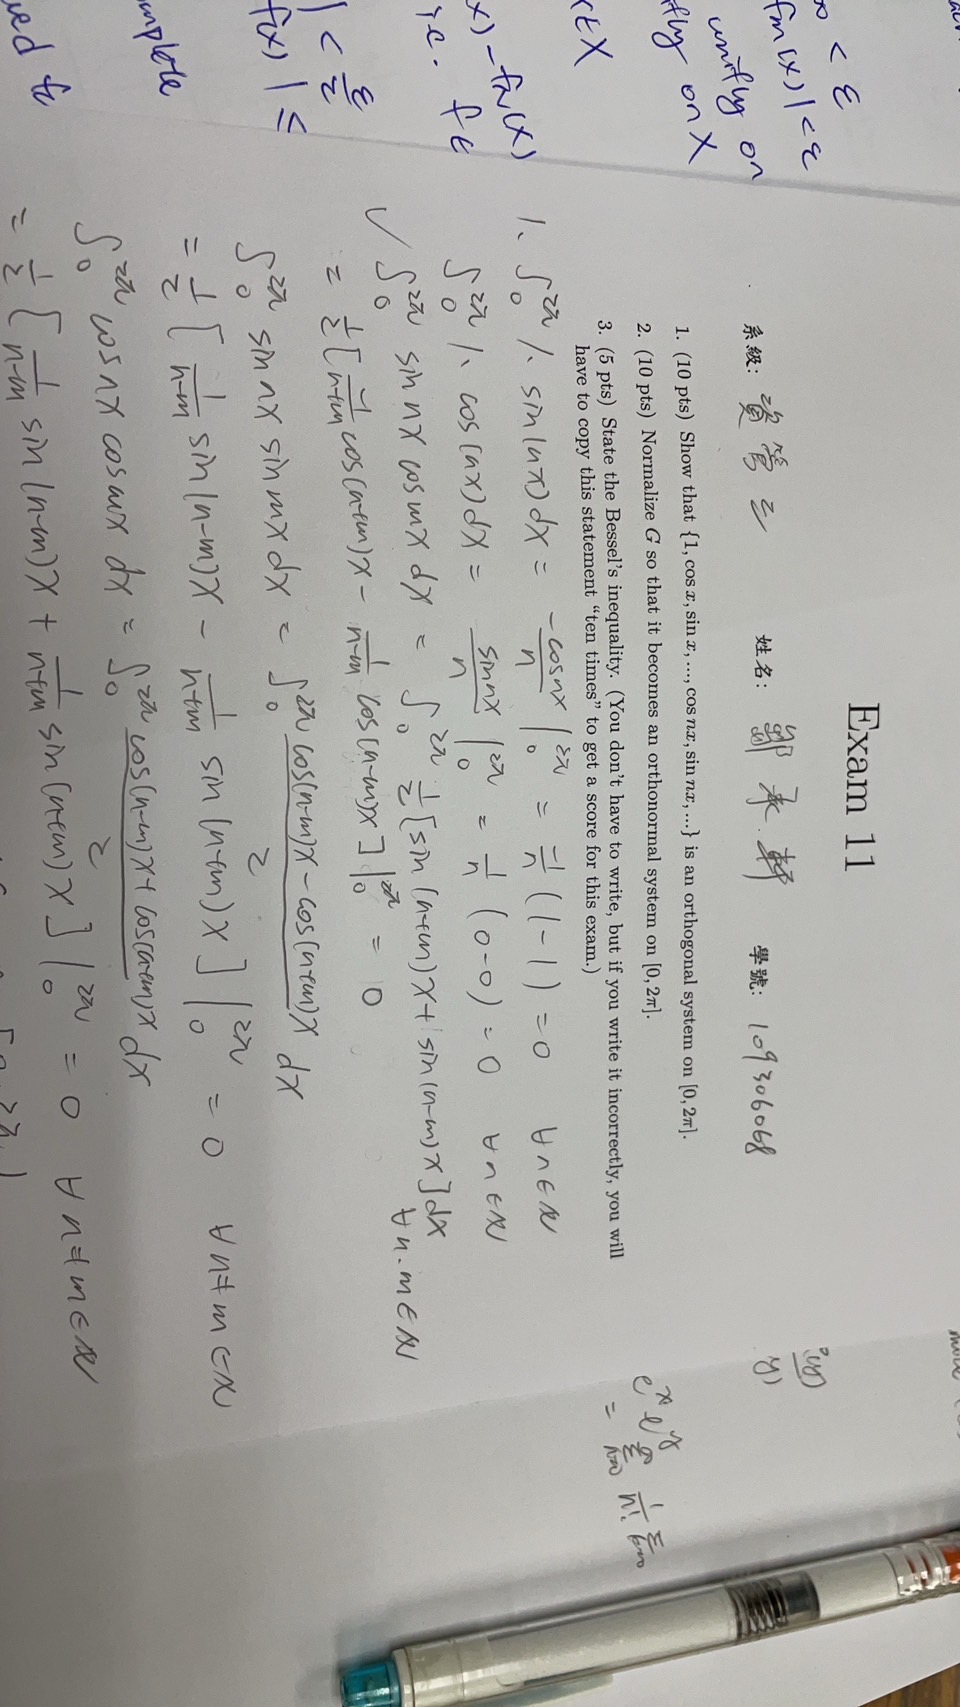 Exam 11
系級: 資管三 姓名: 鄒承軒 學號: 109306068
1. (10 pts) Show that {1, cos x, sin x, ..., cos nx, sin nx, ...} is an orthogonal system on [0, 2π].
2. (10 pts) Normalize G so that it becomes an orthonormal system on [0, 2π].
3. (5 pts) State the Bessel's inequality. (You don't have to write, but if you write it incorrectly, you will
have to copy this statement “ten times” to get a score for this exam.)
1. ∫₀^2π 1· sin(nx) dx = -cosnx/n |₀^2π = -1/n (1-1) = 0 ∀n∈N
∫₀^2π 1· cos(nx) dx = sinnx/n |₀^2π = 1/n (0-0) = 0 ∀n∈N
✓ ∫₀^2π sin nx cos mx dx = ∫₀^2π 1/2 [sin(n+m)x + sin(n-m)x] dx
∀n.m∈N
= 1/2 [-1/(n+m) cos(n+m)x - 1/(n-m) cos(n-m)x] |₀^2π = 0
∫₀^2π sin nx sin mx dx = ∫₀^2π (cos(n-m)x - cos(n+m)x)/2 dx
= 1/2 [1/(n-m) sin(n-m)x - 1/(n+m) sin(n+m)x] |₀^2π = 0 ∀n≠m∈N
∫₀^2π cos nx cos mx dx = ∫₀^2π (cos(n-m)x + cos(n+m)x)/2 dx
= 1/2 [1/(n-m) sin(n-m)x + 1/(n+m) sin(n+m)x] |₀^2π = 0 ∀n≠m∈N
∞ < ε
fm(x)| < ε
unifly on
fly on X
x∈X
x) - fn(x)
i.e. f ∈
| < ε/2
f(x) | ≤
mplete
e^x e^y